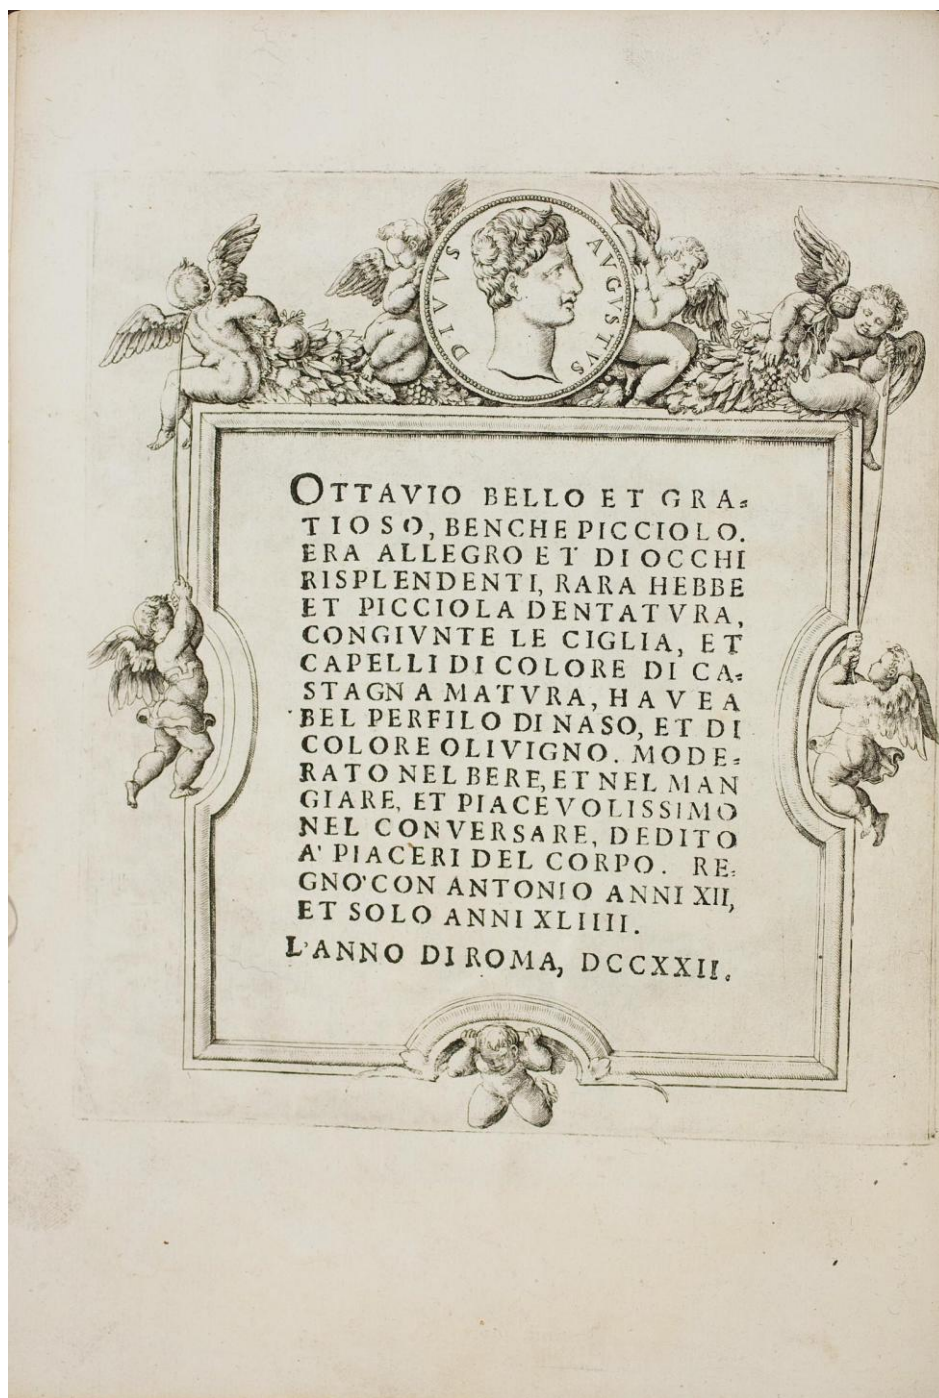 DIVVS AVGVSTVS
OTTAVIO BELLO ET GRA=
TIOSO, BENCHE PICCIOLO.
ERA ALLEGRO ET DI OCCHI
RISPLENDENTI, RARA HEBBE
ET PICCIOLA DENTATVRA,
CONGIVNTE LE CIGLIA, ET
CAPELLI DI COLORE DI CA=
STAGNA MATVRA, HAVEA
BEL PERFILO DI NASO, ET DI
COLORE OLIVIGNO. MODE=
RATO NEL BERE, ET NEL MAN
GIARE, ET PIACEVOLISSIMO
NEL CONVERSARE, DEDITO
A' PIACERI DEL CORPO. RE=
GNO' CON ANTONIO ANNI XII,
ET SOLO ANNI XLIIII.
L'ANNO DI ROMA, DCCXXII.